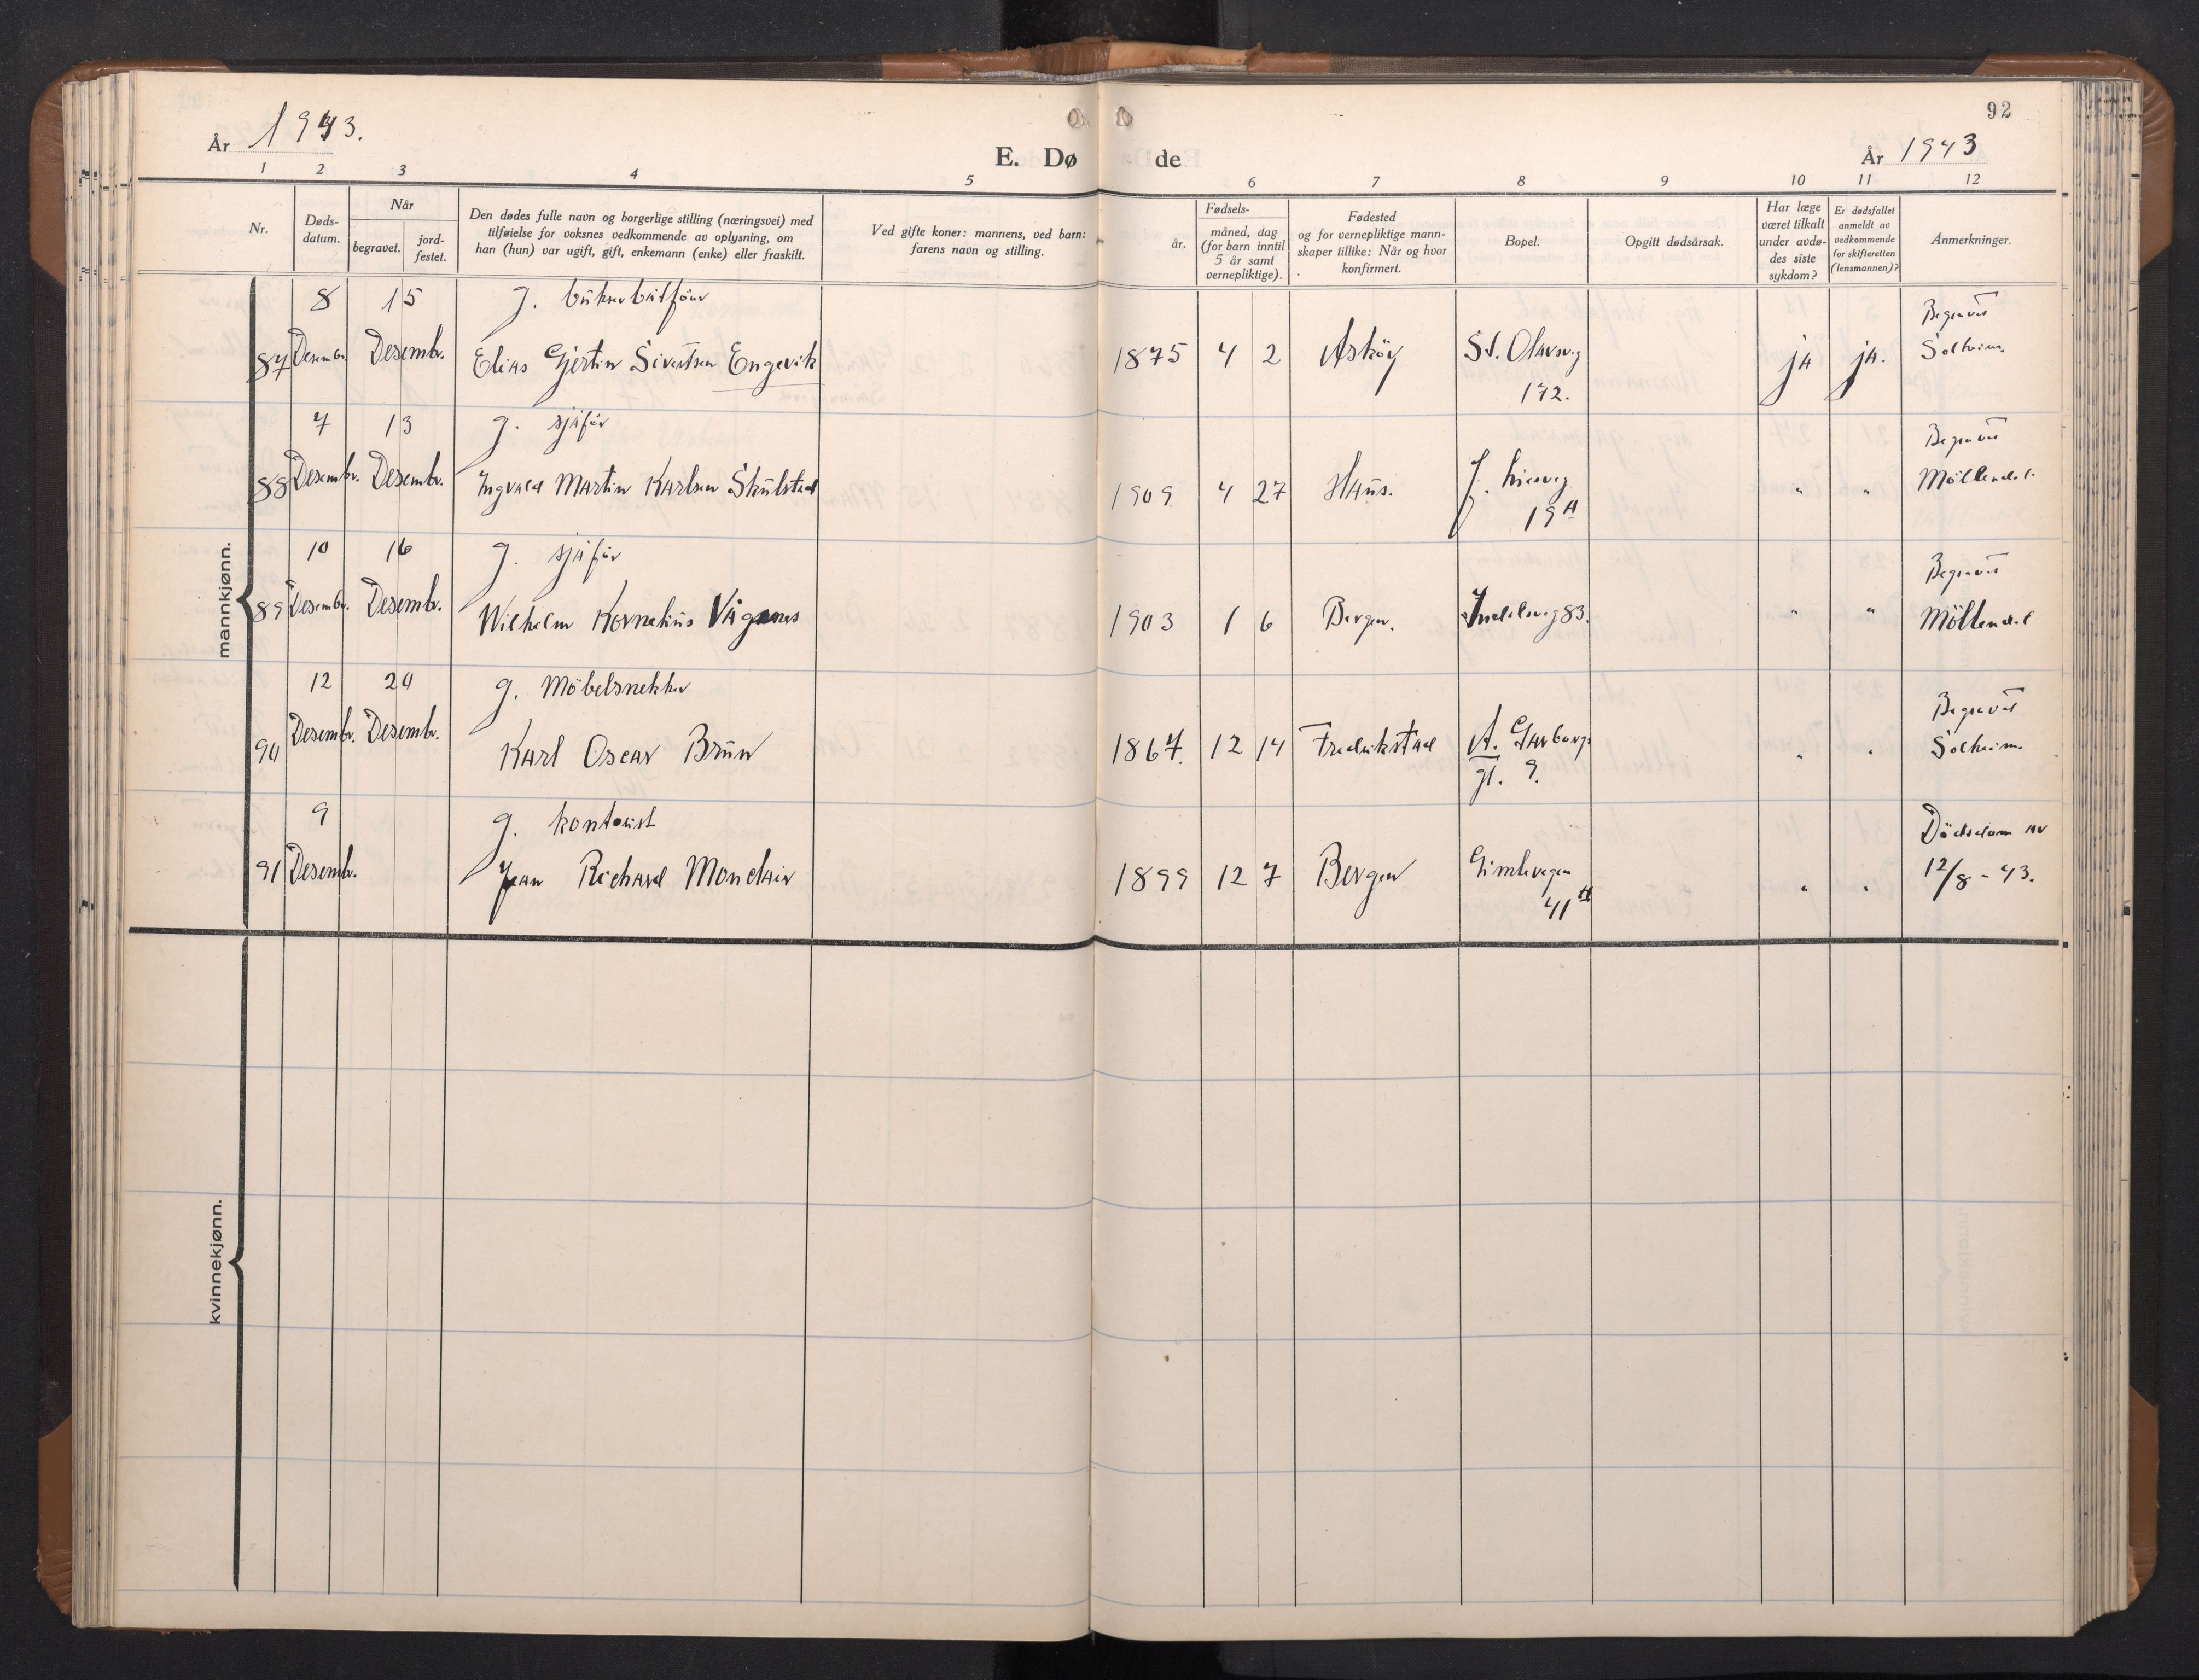 92
År 1943.
E. Dø de
År 1943
1 2 3 4 5 6 7 8 9 10 11 12
Nr.
Døds-
datum.
Når
begravet.
jord-
festet.
Den dødes fulle navn og borgerlige stilling (næringsvei) med
tilføielse for voksnes vedkommende av oplysning, om
han (hun) var ugift, gift, enkemann (enke) eller fraskilt.
Ved gifte koner: mannens, ved barn:
farens navn og stilling.
Fødsels-
år.
måned, dag
(for barn inntil
5 år samt
vernepliktige).
Fødested
og for vernepliktige mann-
skaper tillike: Når og hvor
konfirmert.
Bopel.
Opgitt dødsårsak.
Har læge
været tilkalt
under avdø-
des siste
sykdom?
Er dødsfallet
anmeldt av
vedkommende
for skifteretten
(lensmannen)?
Anmerkninger.
mankjønn.
8 15 g. bukserbåtfører Begravet
87 Desembr. Desembr. Elias Gjertin Sivertsen Engevik 1875 4 2 Askøy St. Olavsvg ja ja. Solheim.
172.
7 13 g. sjåfør Begravet
88 Desembr. Desembr. Ingvald Martin Karlsen Skulstad 1909 4 27 Haus. J. Liesveg " " Møllendal.
19A
10 16 g. sjåfør Begravet
89 Desembr. Desembr. Wilhelm Kornelius Vågenes 1903 1 6 Bergen. 83. " " Møllendal
12 20 g. Møbelsnekker Begravet
90 Desembr. Desembr. Karl Oscar Brun 1867. 12 14 Fredrikstad A. Garborgs " " Solheim.
gt. 9.
9 g. kontorist Dødsdom av
91 Desembr. Jean Richard Monclair 1899 12 7 Bergen Gimlevegen " " 12/8 - 43.
41
kvinnekjønn.